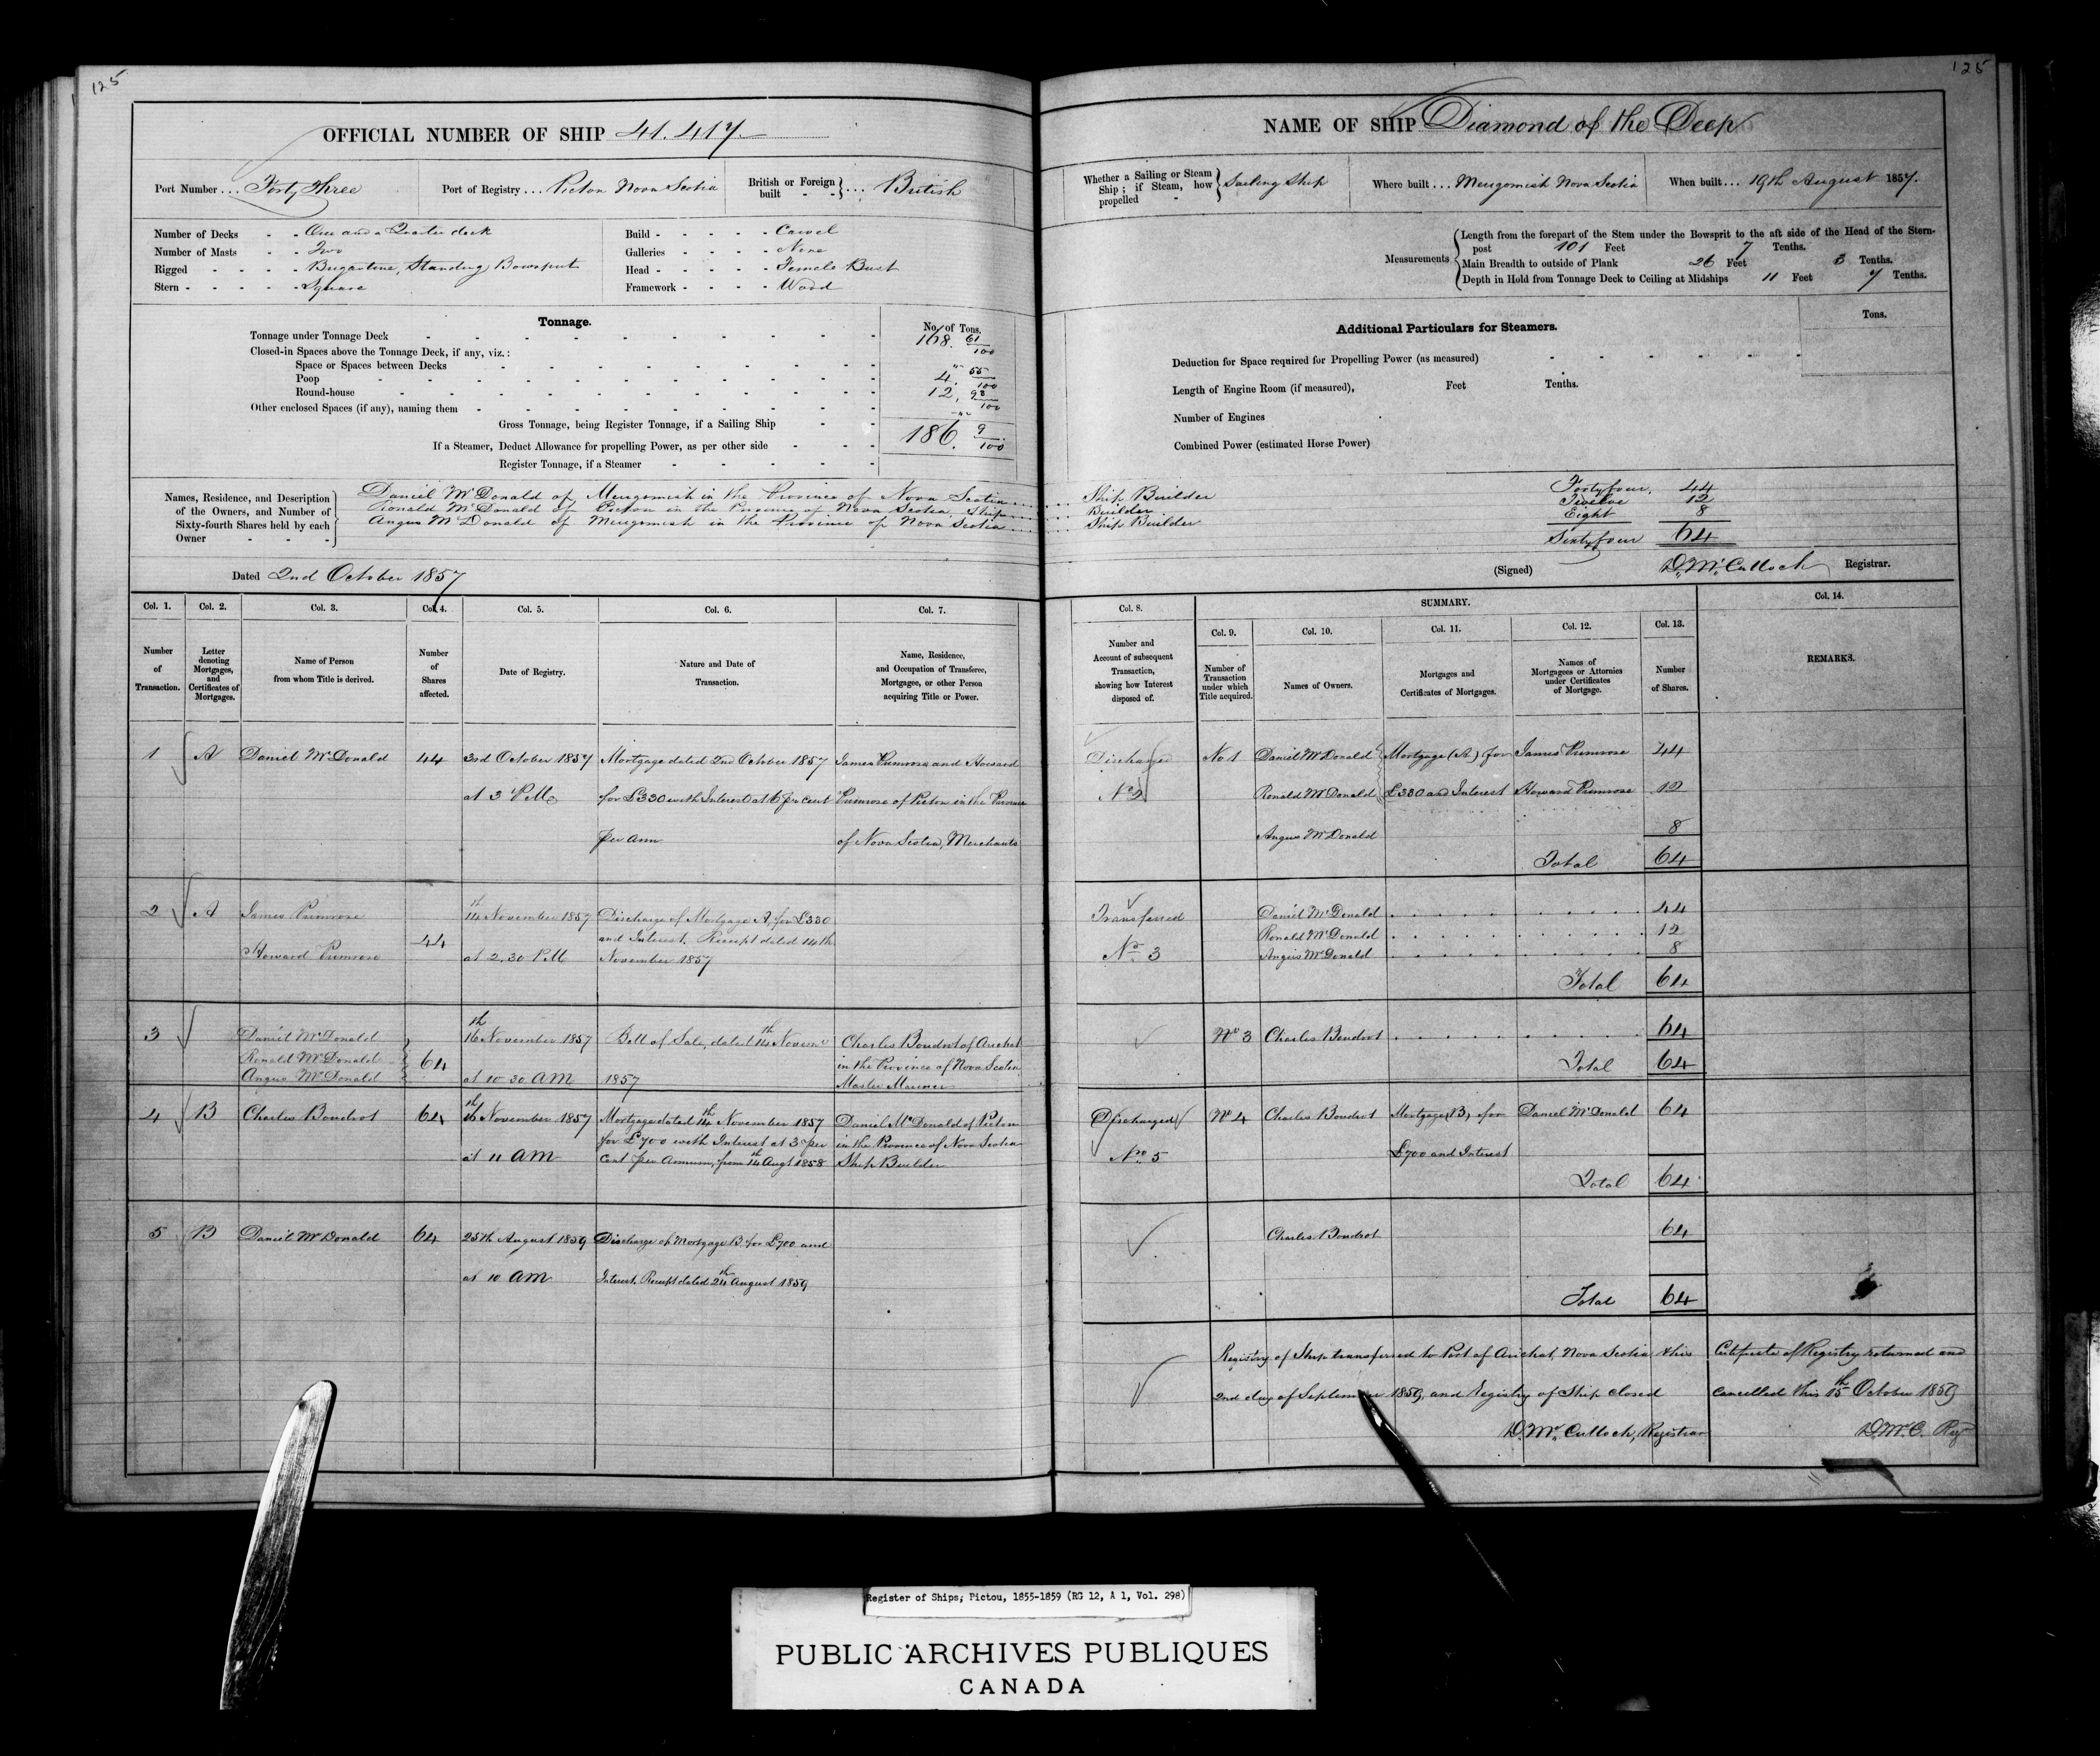 125
OFFICIAL NUMBER OF SHIP 41.417
Port Number ... Forty Three
Port of Registry ... Pictou Nova Scotia
British or Foreign built - - } ... British
Number of Decks - - One and a Quarter deck
Number of Masts - - Two
Rigged - - - - Brigantine, Standing Bowsprit
Stern - - - - - Square
Build - - - - - Carvel
Galleries - - - - None
Head - - - - - Female Bust
Framework - - - - Wood
Tonnage.
No. of Tons.
Tonnage under Tonnage Deck 168. 61/100
Closed-in Spaces above the Tonnage Deck, if any, viz.:
Space or Spaces between Decks "
Poop 4. 55/100
Round-house 12. 93/100
Other enclosed Spaces (if any), naming them
Gross Tonnage, being Register Tonnage, if a Sailing Ship 186. 9/100
If a Steamer, Deduct Allowance for propelling Power, as per other side
Register Tonnage, if a Steamer
Names, Residence, and Description of the Owners, and Number of Sixty-fourth Shares held by each Owner - - -
Daniel McDonald of Merigomish in the Province of Nova Scotia
Ronald McDonald of Pictou in the Province of Nova Scotia, Ship
Angus McDonald of Merigomish in the Province of Nova Scotia
Dated 2nd October 1857
Col. 1. Col. 2. Col. 3. Col. 4. Col. 5. Col. 6. Col. 7.
Number of Transaction.
Letter denoting Mortgages, and Certificates of Mortgages.
Name of Person from whom Title is derived.
Number of Shares affected.
Date of Registry.
Nature and Date of Transaction.
Name, Residence, and Occupation of Transferee, Mortgagee, or other Person acquiring Title or Power.
1 A Daniel McDonald 44 3rd October 1857 Mortgage dated 2nd October 1857 James Primrose and Howard
at 3 P.M. for £330 with Interest at 6 per cent Primrose of Pictou in the Province
per ann of Nova Scotia, Merchants
2 A James Primrose 14th November 1857 Discharge of Mortgage A, for £330
Howard Primrose 44 and Interest. Receipt dated 14th
at 2.30 P.M November 1857
3 Daniel McDonald 16th November 1857 Bill of Sale, dated 14th Novemr Charles Boudrot of Arichat
Ronald McDonald 64 in the Province of Nova Scotia
Angus McDonald at 10 30 AM 1857 Master Mariner
4 B Charles Boudrot 64 16th November 1857 Mortgage dated 14th November 1857 Daniel McDonald of Pictou
for £700 with Interest at 3 per in the Province of Nova Scotia
at 11 AM Cent per Annum, from 14th Augt 1858 Ship Builder
5 B Daniel McDonald 64 25th August 1859 Discharge of Mortgage B. for £700 and
at 10 AM Interest. Receipt dated 24th August 1859
125
NAME OF SHIP Diamond of the Deep
Whether a Sailing or Steam Ship; if Steam, how propelled - } Sailing Ship
Where built ... Merigomish Nova Scotia
When built ... 19th August 1857.
Measurements
Length from the forepart of the Stem under the Bowsprit to the aft side of the Head of the Stern-
post 101 Feet 7 Tenths.
Main Breadth to outside of Plank 26 Feet 3 Tenths.
Depth in Hold from Tonnage Deck to Ceiling at Midships 11 Feet 7 Tenths.
Additional Particulars for Steamers.
Tons.
Deduction for Space required for Propelling Power (as measured)
Length of Engine Room (if measured), Feet Tenths.
Number of Engines
Combined Power (estimated Horse Power)
Ship Builder Forty four, 44
Builder Twelve 12
Ship Builder Eight 8
Sixty four 64
(Signed) D. McCulloch Registrar.
Col. 8. SUMMARY. Col. 14.
Col. 9. Col. 10. Col. 11. Col. 12. Col. 13.
Number and Account of subsequent Transaction, showing how Interest disposed of.
Number of Transaction under which Title acquired.
Names of Owners.
Mortgages and Certificates of Mortgages.
Names of Mortgagees or Attornies under Certificates of Mortgage.
Number of Shares.
REMARKS.
Discharged No 1 Daniel McDonald Mortgage (A.) for James Primrose 44
No 2 Ronald McDonald £330 and Interest Howard Primrose 12
Angus McDonald 8
Total 64
Transferred Daniel McDonald 44
Ronald McDonald 12
No 3 Angus McDonald 8
Total 64
No 3 Charles Boudrot 64
Total 64
Discharged No 4 Charles Boudrot Mortgage (B) for Daniel McDonald 64
No. 5 £700 and Interest
Total 64
Charles Boudrot 64
Total 64
Registry of Ship transferred to Port of Arichat, Nova Scotia this
2nd day of September 1859, and Registry of Ship closed
D. McCulloch, Registrar
Certificate of Registry returned and
cancelled this 15th October 1859
D.McC. Regr
Register of Ships; Pictou, 1855-1859 (RG 12, A 1, Vol. 298)
PUBLIC ARCHIVES PUBLIQUES
CANADA